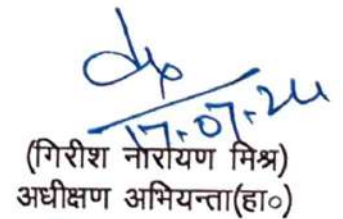 17.07.24
(गिरीश नारायण मिश्र)
अधीक्षण अभियन्ता(हा०)